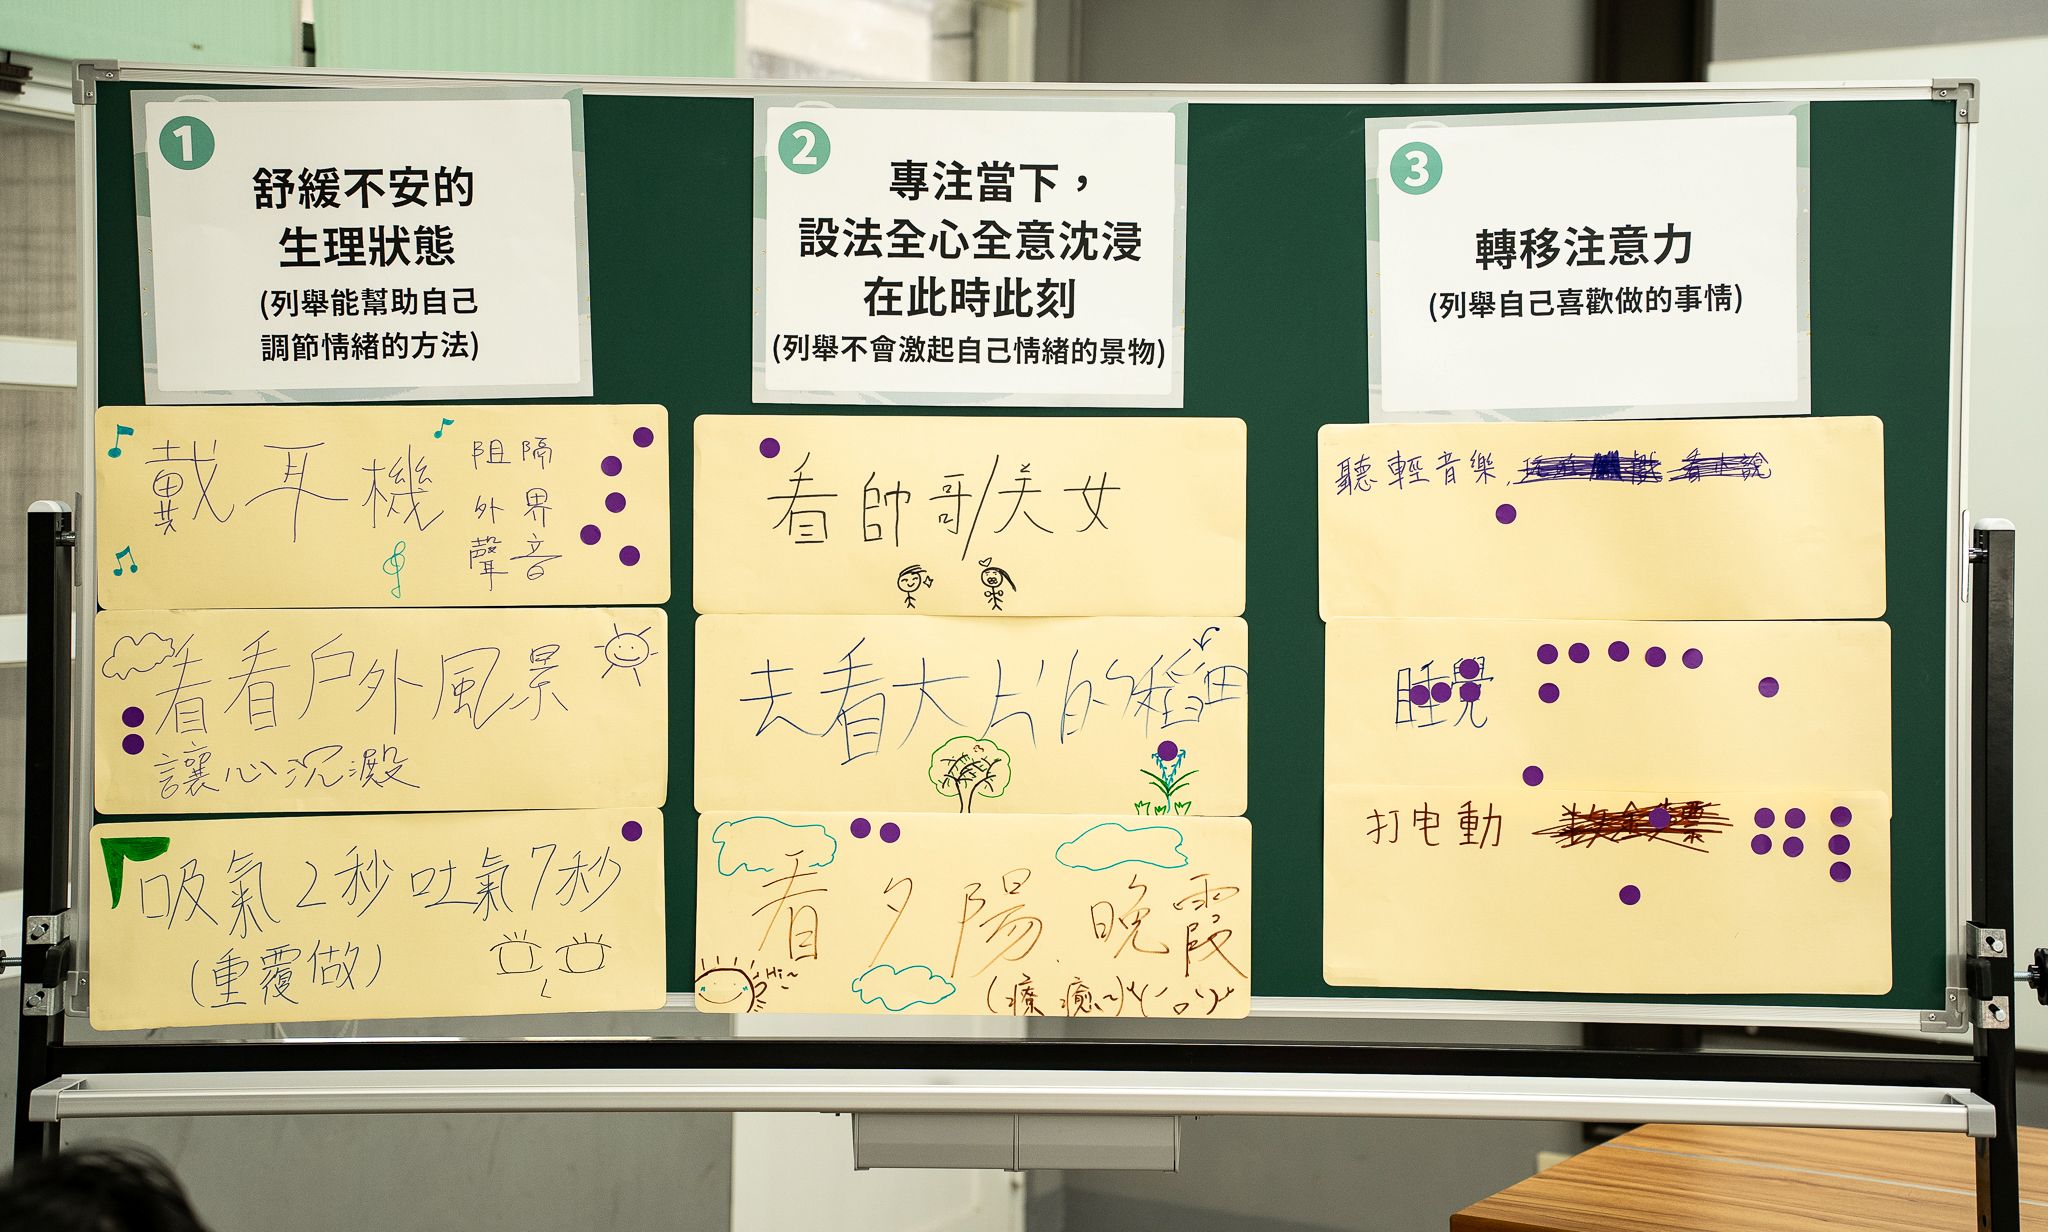 1
舒緩不安的
生理狀態
(列舉能幫助自己
調節情緒的方法)
戴耳機
阻隔
外界
聲音
看看戶外風景
讓心沉澱
吸氣2秒吐氣7秒
(重覆做)
2
專注當下，
設法全心全意沈浸
在此時此刻
(列舉不會激起自己情緒的景物)
看帥哥/美女
去看大片的稻田
看夕陽、晚霞
Hi~
(療癒~)
3
轉移注意力
(列舉自己喜歡做的事情)
聽輕音樂, 看小說
睡覺
打电動